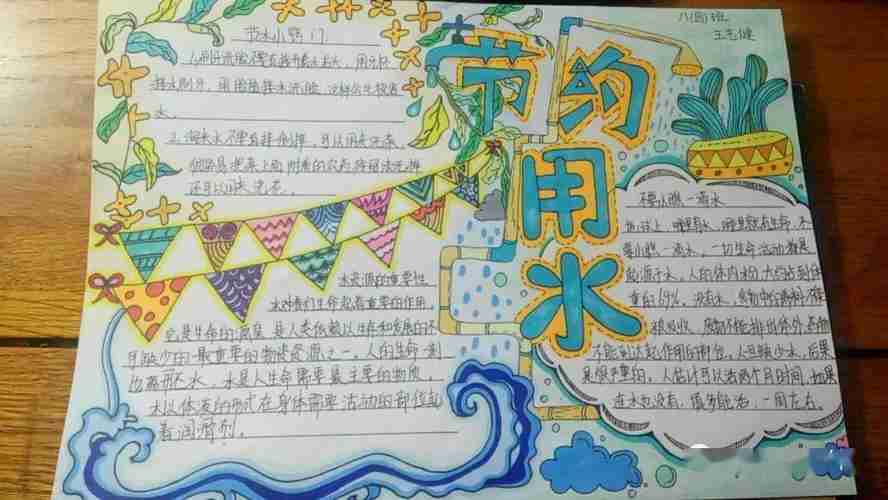 八(四)班
王志健
节约用水
节水小窍门
1.刷牙洗脸不要直接开着水龙头,用牙杯
接水刷牙,用脸盆接水洗脸,这样会节约省
水。
2.淘米水不要直接倒掉,可以用来洗菜,
很容易把菜上面附着的农药残留清洗掉
还可以用来洗衣。
水资源的重要性
水对我们生命起着重要的作用,
它是生命的源泉,是人类依赖以生存和发展的不
可缺少的最重要的物质资源之一。人的生命一刻
也离不开水,水是人生命需要最主要的物质。
水以体液的形式在身体需要活动的部位起
着润滑剂。
不要小瞧一滴水
地球上,哪里有水,哪里就有生命,不
要小瞧一滴水。一切生命活动都是
起源于水。人的体内水份大约占到体
重的69%。没有水,食物中的养料不能
被吸收,废物不能排出体外,药物
不能到达起作用的部位。人旦缺少水,后果
是很严重的。人估计可以活两个月时间,如果
连水也没有,顶多能活一周左右。